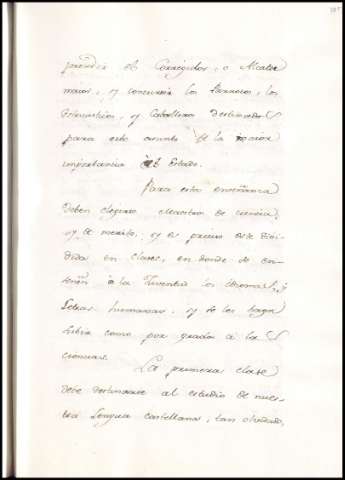 el Corregidor, o Alcalde
maior, y concurrir los Parrocos, los
y Caballeros destinados
para este asunto de la maior
importancia del Estado.
Para esta enseñanza
deben elegirse Maestros de ciencia,
y de merito, y es preciso este divi-
dida en Clases, en donde se en-
señen à la Juventud los Idiomas, y
Letras humanas, y se les haga
subir como por grados à la
La primera clase
debe destinarse al estudio de nues-
tra Lengua Castellana, tan olvidada,